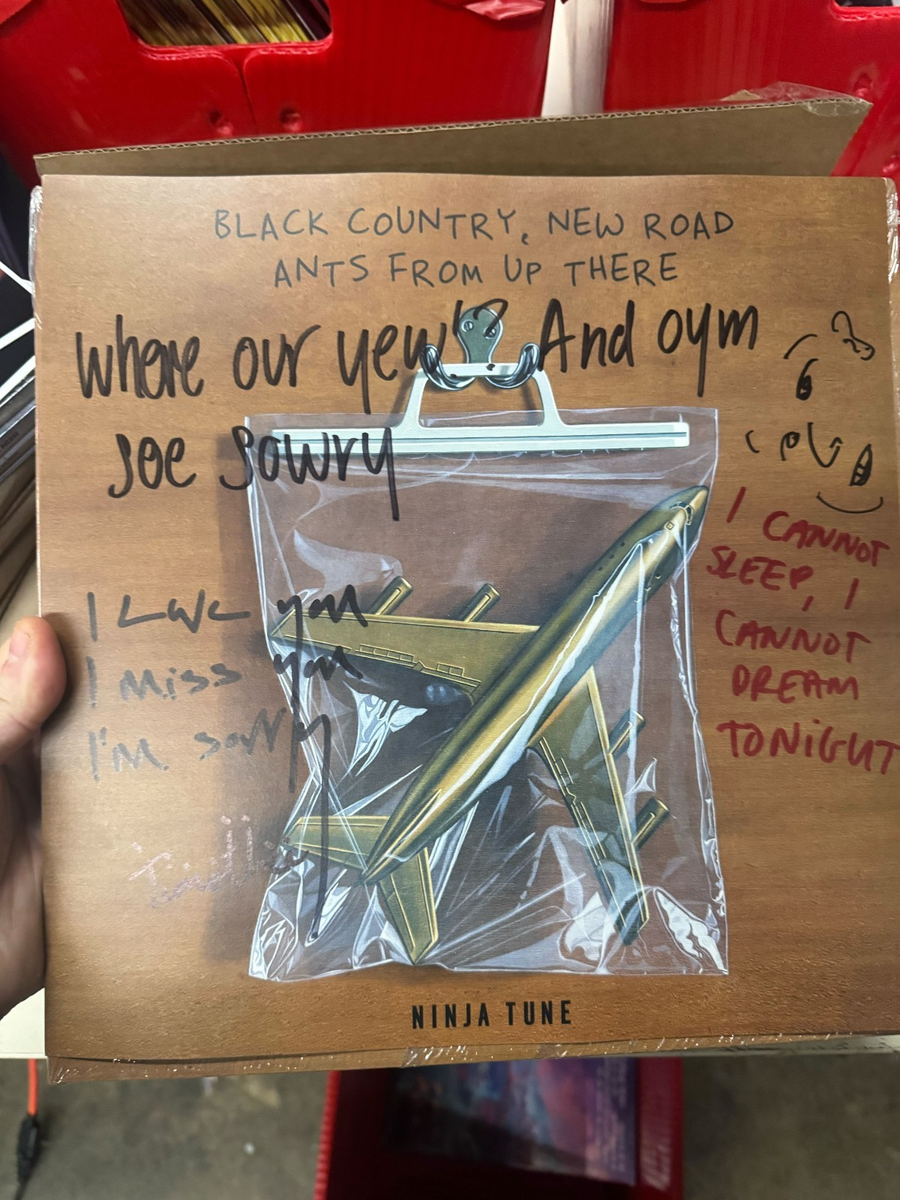 BLACK COUNTRY, NEW ROAD
ANTS FROM UP THERE
where our yew'? And oym
Joe Sowry
I CANNOT
SLEEP, I
CANNOT
DREAM
TONIGHT
I love you
I miss you
I'm sorry
NINJA TUNE